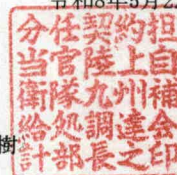 令和8年5月2
分任契約担
当官陸上自
衛隊九州補
給処調達会
計部長之印
樹